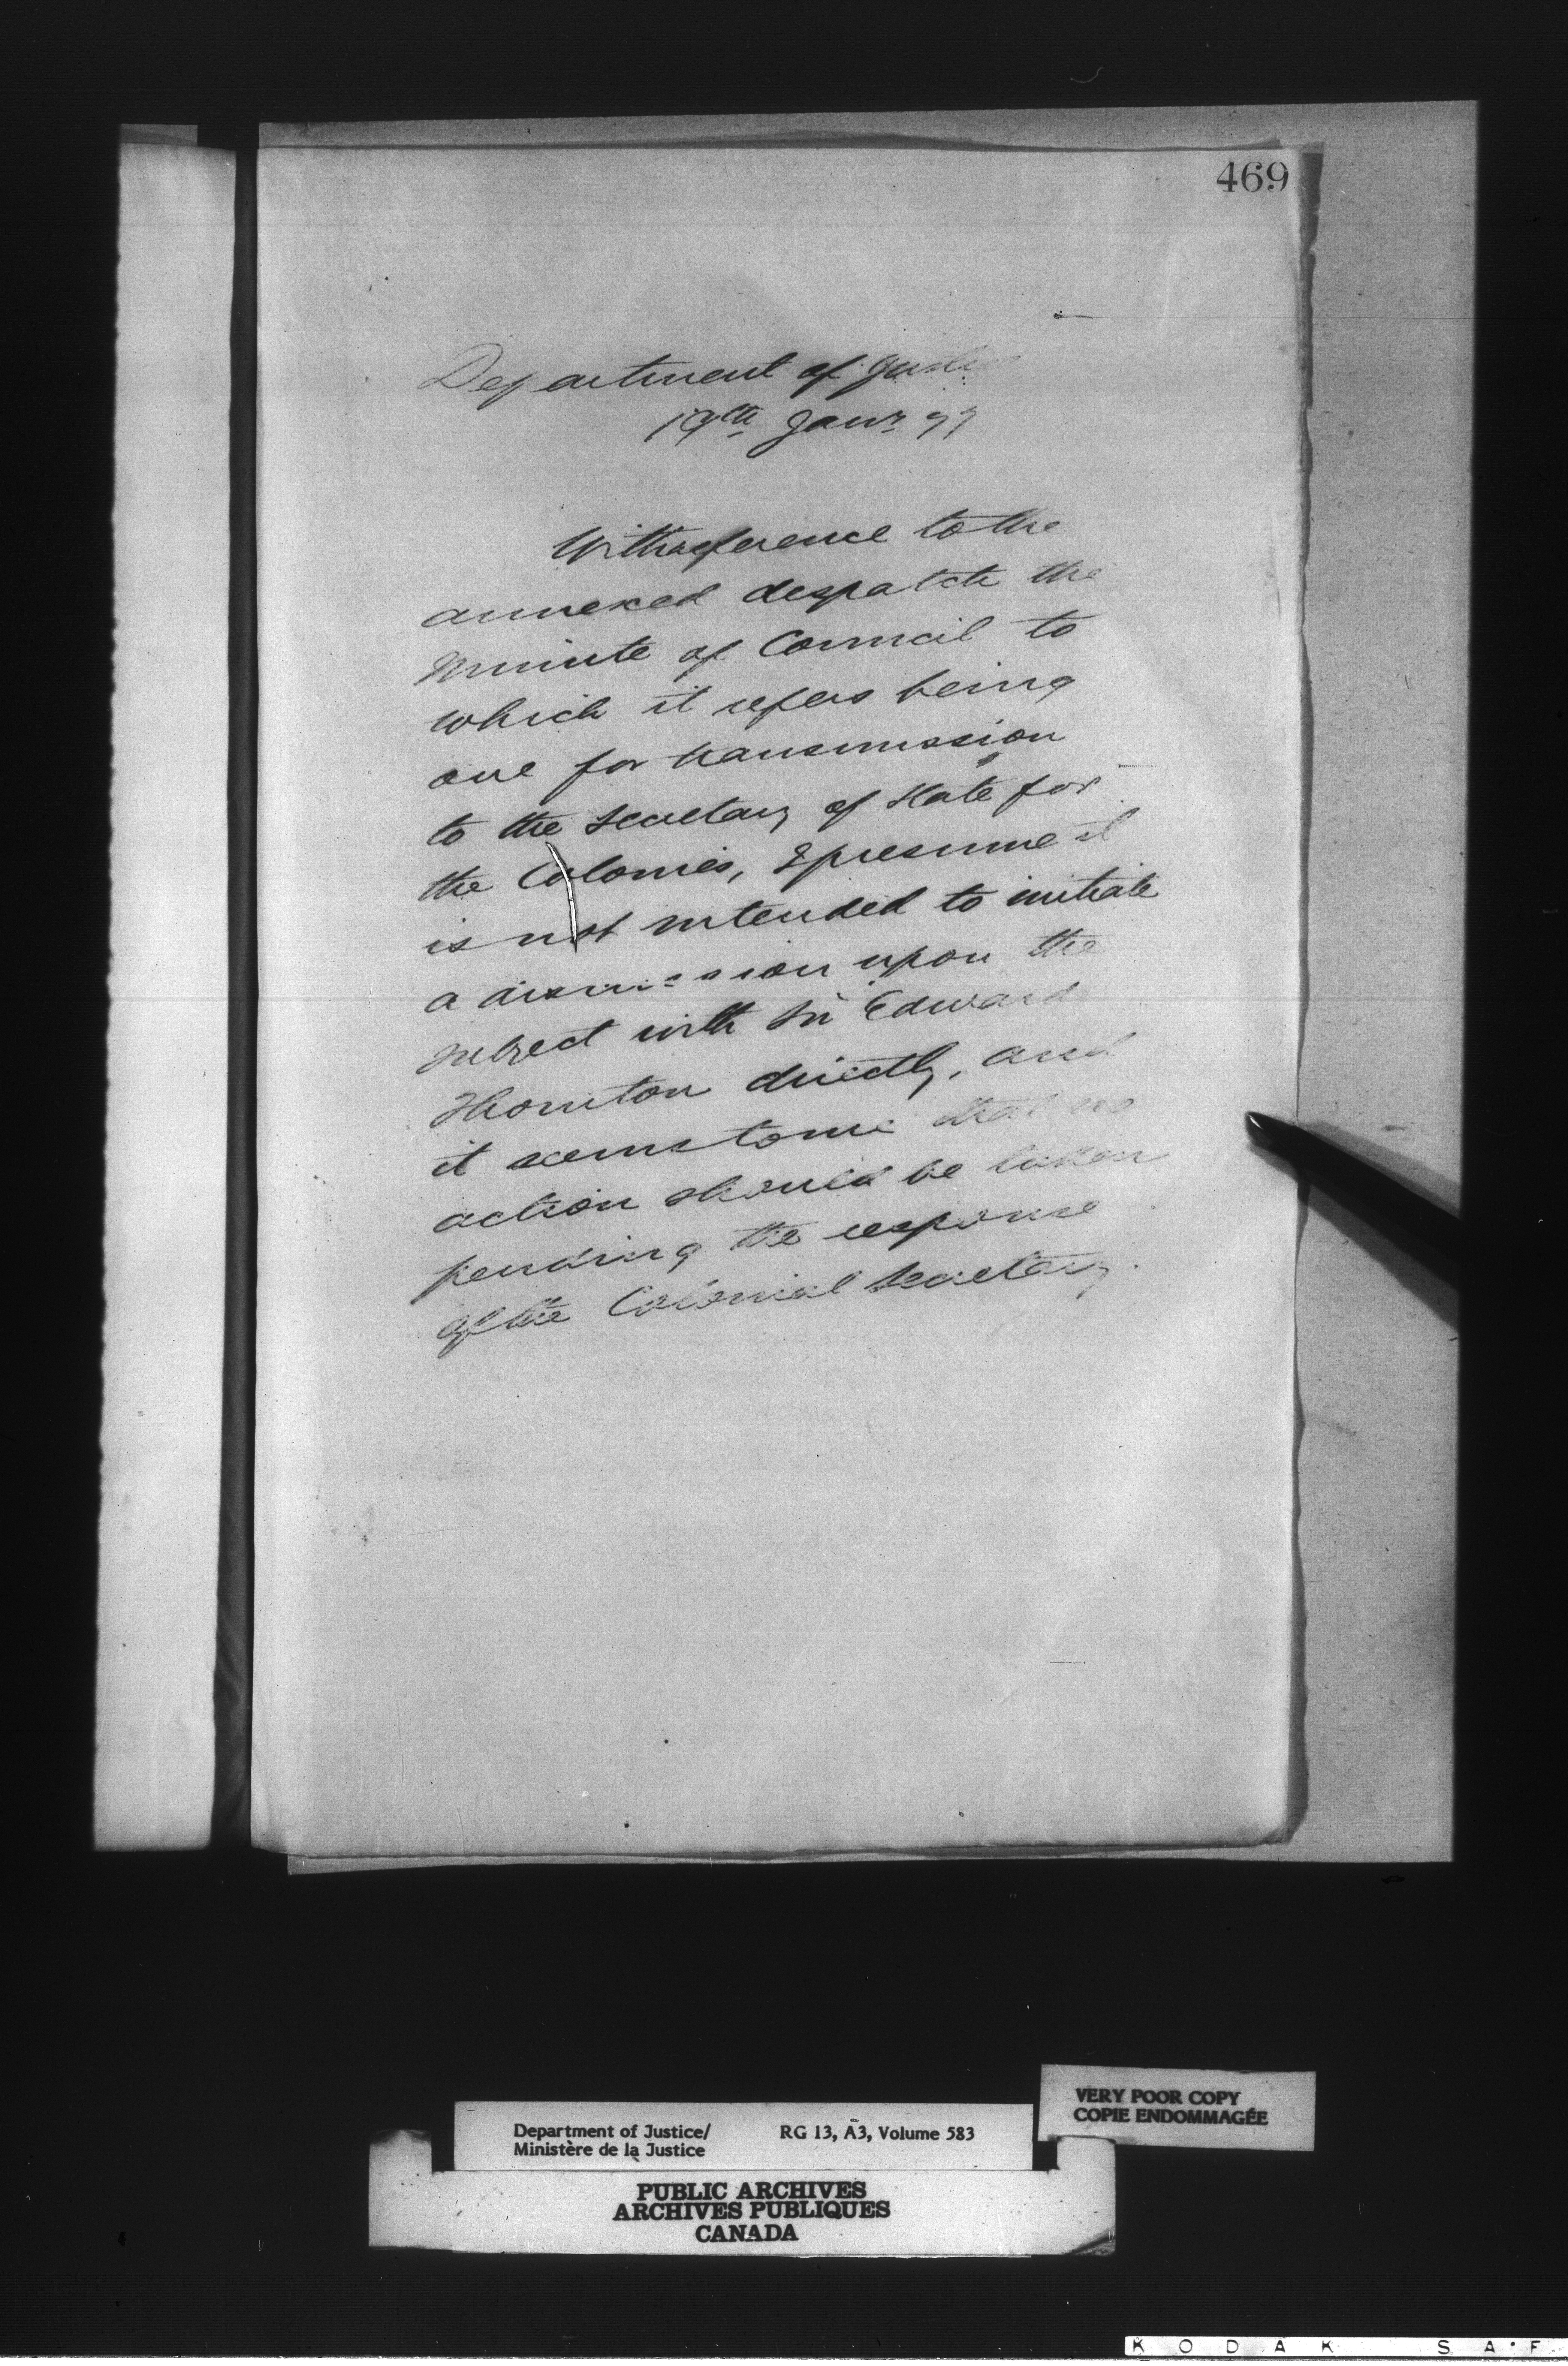 469
Department of Justice
19th Janr 77
With reference to the
annexed despatch the
Minute of Council to
which it refers being
one for transmission
to the Secretary of State for
the Colonies, I presume it
is not intended to initiate
a discussion upon the
subject with Sir Edward
Thornton directly, and
it seems to me that no
action should be taken
pending the response
of the Colonial Secretary.
VERY POOR COPY
COPIE ENDOMMAGÉE
Department of Justice/ RG 13, A3, Volume 583
Ministère de la Justice
PUBLIC ARCHIVES
ARCHIVES PUBLIQUES
CANADA
KODAK SAF